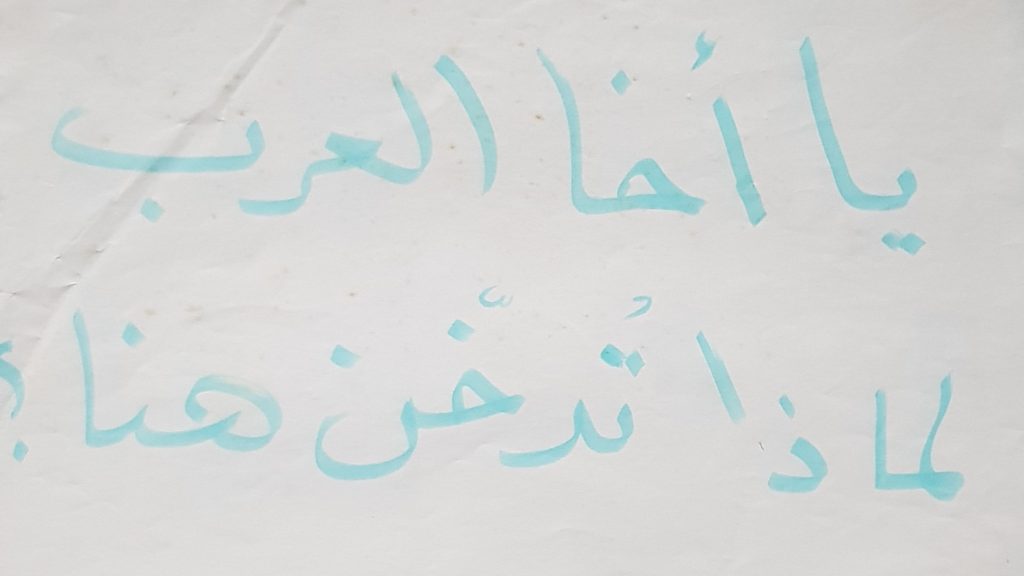 يا أخا العرب
لماذا تُدخّن هنا ؟